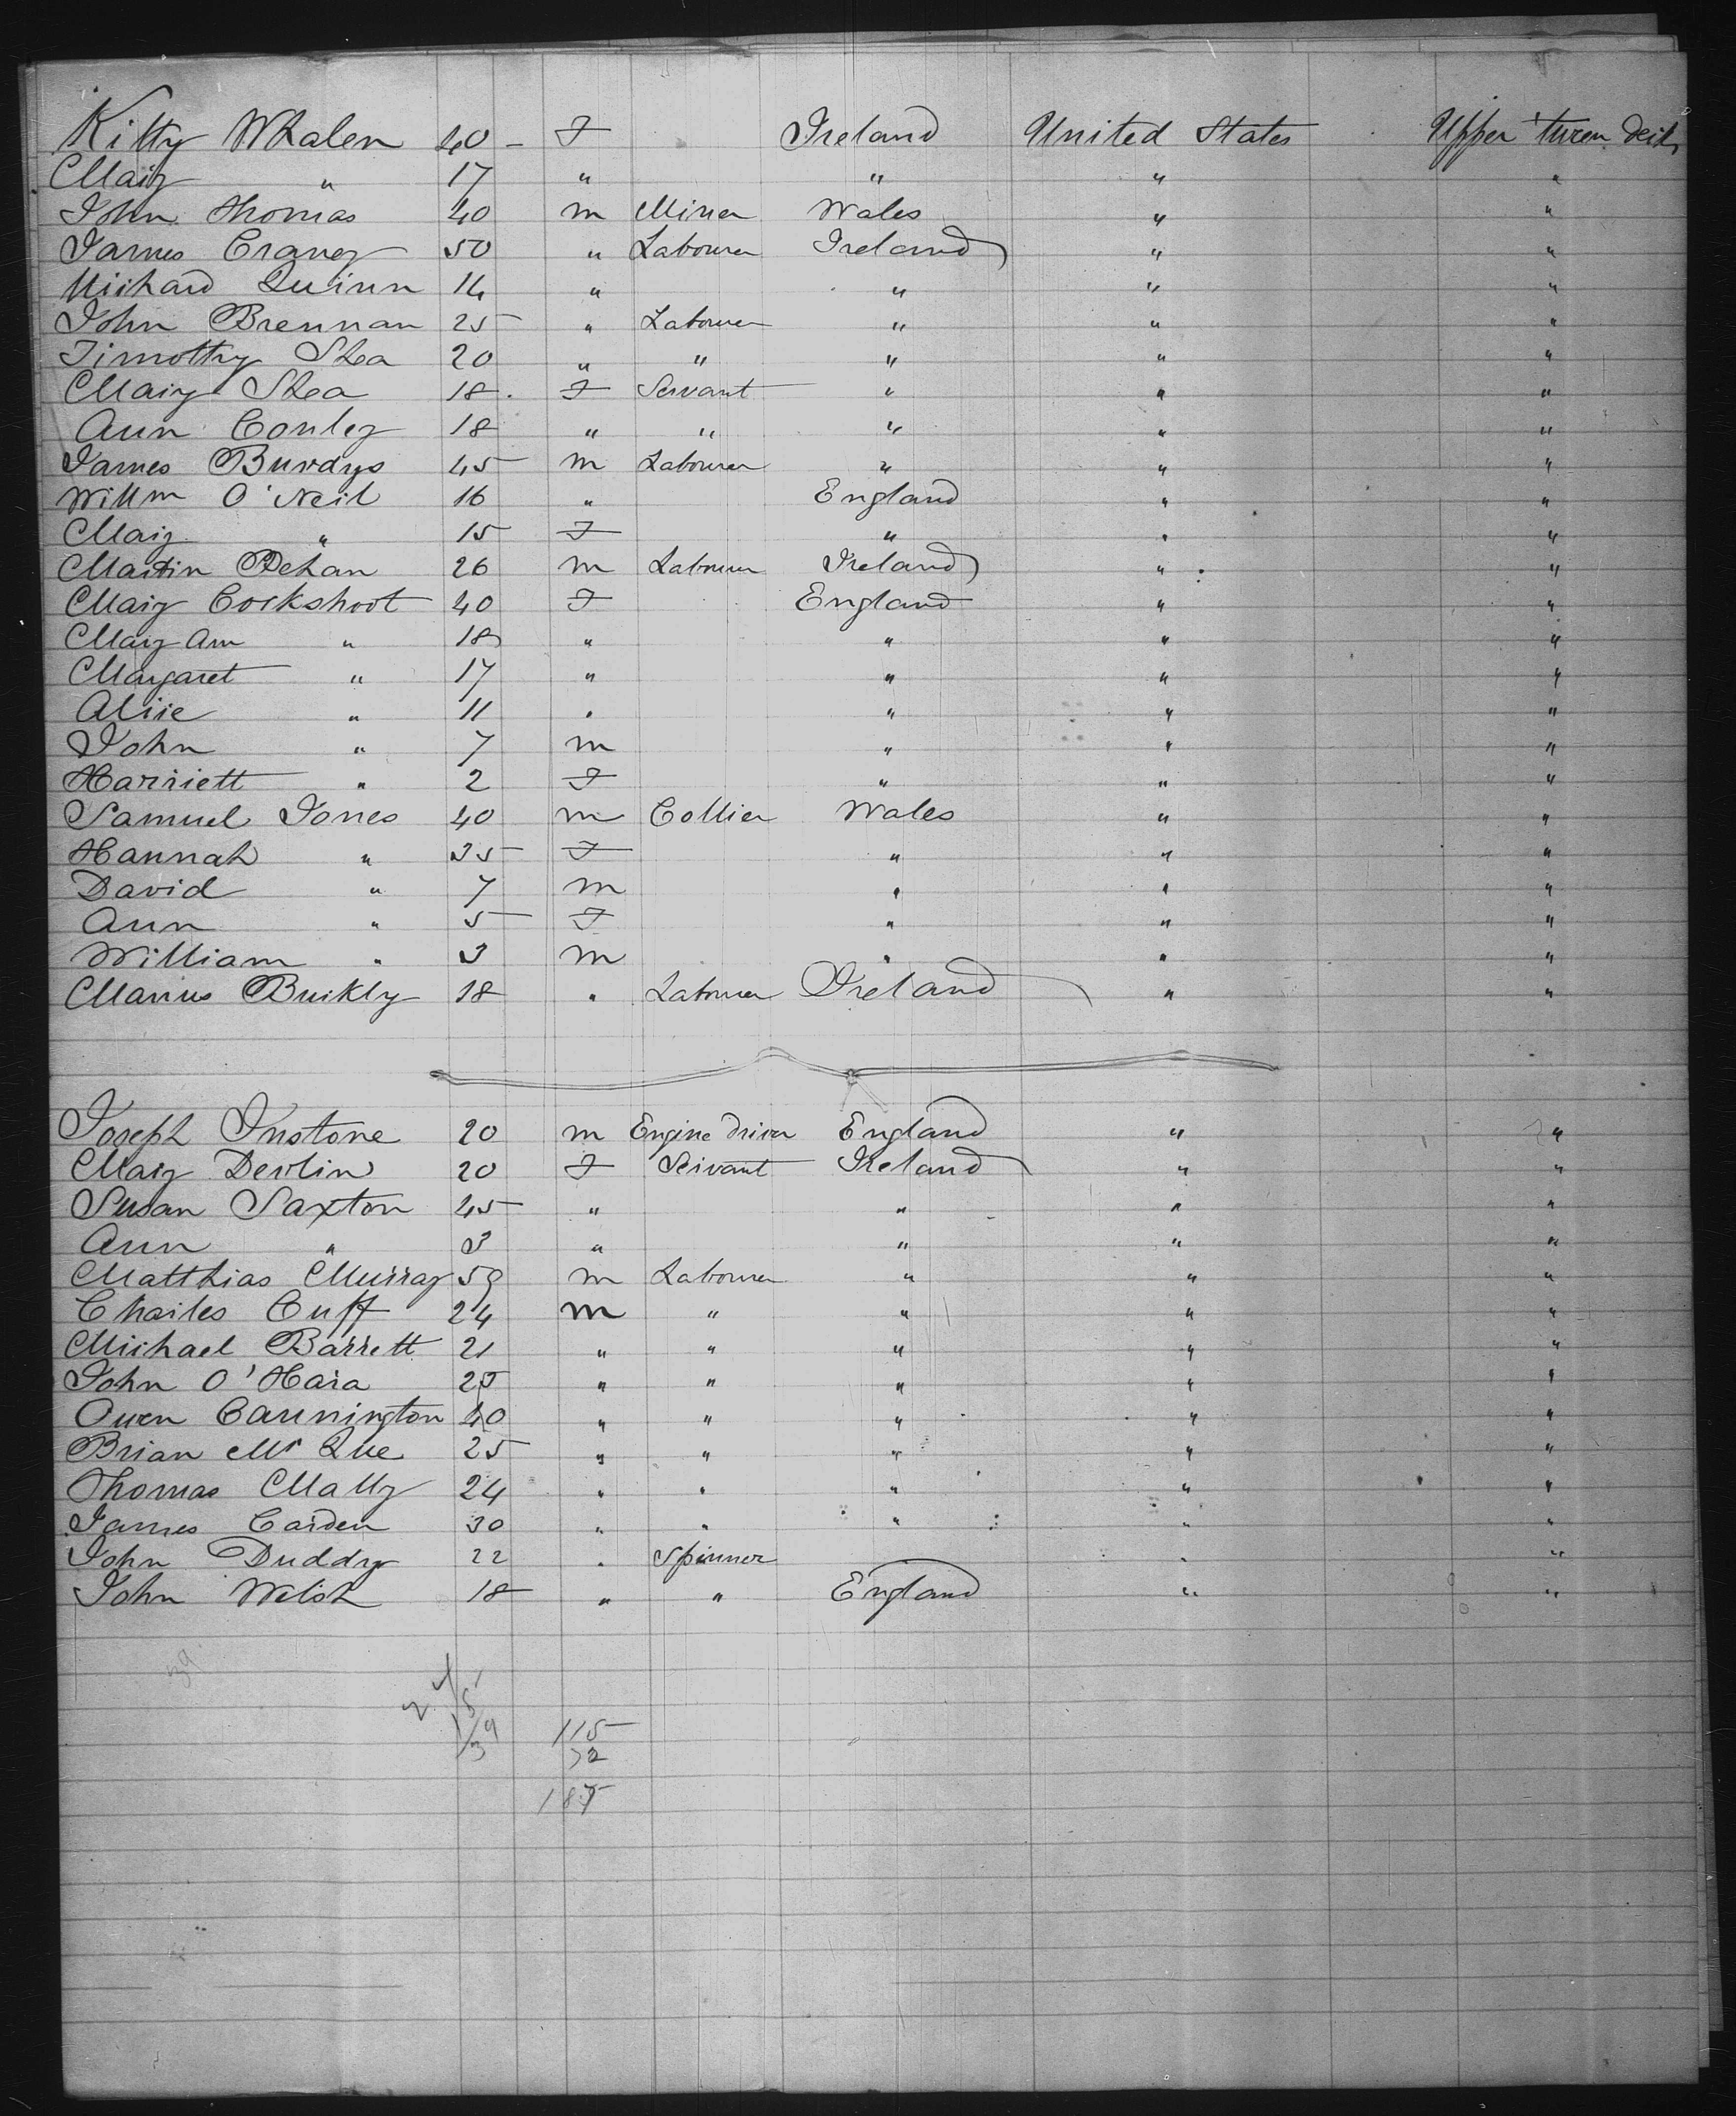 Kitty Whalen 40 - F Ireland United States Upper 'tween Decks
Mary " 17 " " " "
John Thomas 40 m Miner Wales " "
James Craney 50 " Labourer Ireland " "
Michard Quinn 14 " " " "
John Brennan 25 " Labourer " " "
Timothy Shea 20 " " " " "
Mary Shea 18 . F Servant " " "
Ann Conley 18 " " " " "
James Burdys 45 m Labourer " " "
Willm O'Neil 16 " England " "
Mary " 15 F " " "
Martin Dehan 26 m Labourer Ireland " "
Mary Cockshoot 40 F England " "
Mary Ann " 18 " " " "
Margaret " 17 " " " "
Alice " 11 " " " "
John " 7 m " " "
Harriett " 2 F " " "
Samuel Jones 40 m Collier Wales " "
Hannah " 35 F " " "
David " 7 m " " "
Ann " 5 F " " "
William " 3 m " " "
Manus Buckly 18 " Labourer Ireland " "
Joseph Instone 20 m Engine Driver England " "
Mary Devlin 20 F Servant Ireland " "
Susan Saxton 45 " " " "
Ann " 3 " " " "
Matthias Murray 59 m Labourer " " "
Charles Cuff 24 m " " " "
Michael Barrett 21 " " " " "
John O'Hara 25 " " " " "
Owen Cannington 40 " " " " "
Brian Mc Que 25 " " " " "
Thomas Mally 24 " " " " "
James Carden 30 " " " " "
John Duddy 22 " Spinner " "
John Welsh 18 " " England " "
39
24
15
39
115
72
187